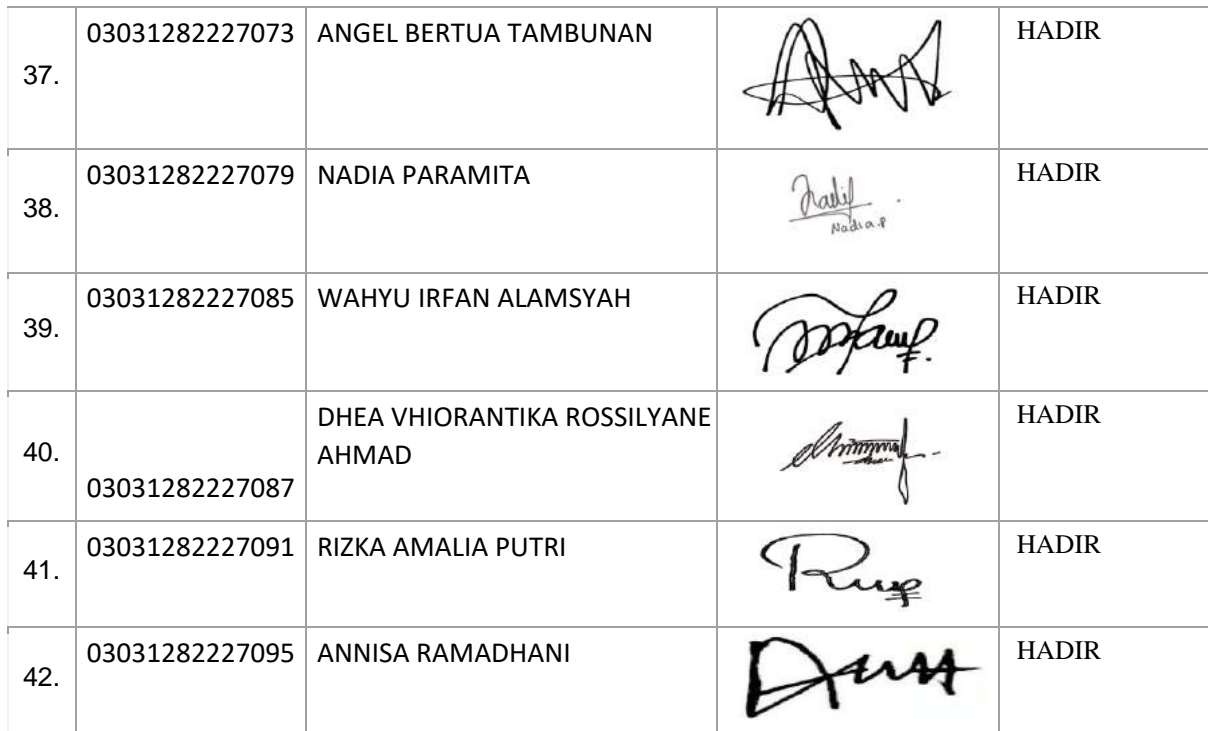 37. 03031282227073 ANGEL BERTUA TAMBUNAN HADIR
38. 03031282227079 NADIA PARAMITA HADIR
Nadia.P
39. 03031282227085 WAHYU IRFAN ALAMSYAH HADIR
40. 03031282227087 DHEA VHIORANTIKA ROSSILYANE
AHMAD HADIR
41. 03031282227091 RIZKA AMALIA PUTRI HADIR
42. 03031282227095 ANNISA RAMADHANI HADIR